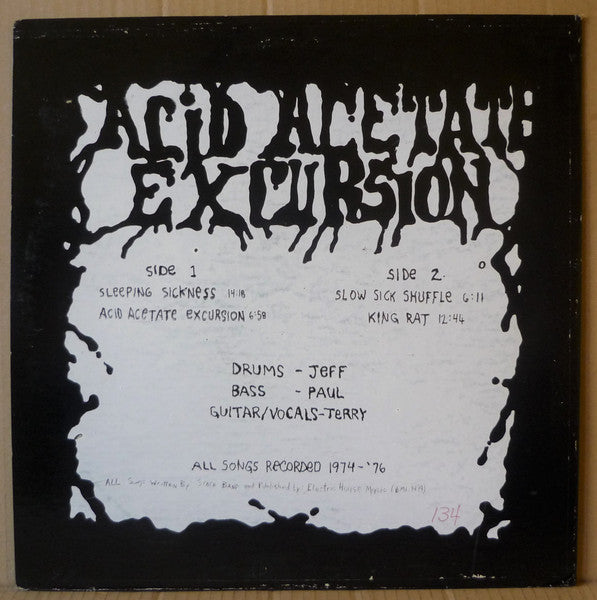 ACiD ACETATE
EXCURSION
SiDE 1
SLEEPING SICKNESS 14:18
ACID ACETATE EXCURSION 6:58
SIDE 2
SLOW SICK SHUFFLE 6:11
KING RAT 12:44
DRUMS - JEFF
BASS - PAUL
GUITAR/VOCALS-TERRY
ALL SONGS RECORDED 1974-'76
ALL Songs Written By Band and Published by: Electric Music
134